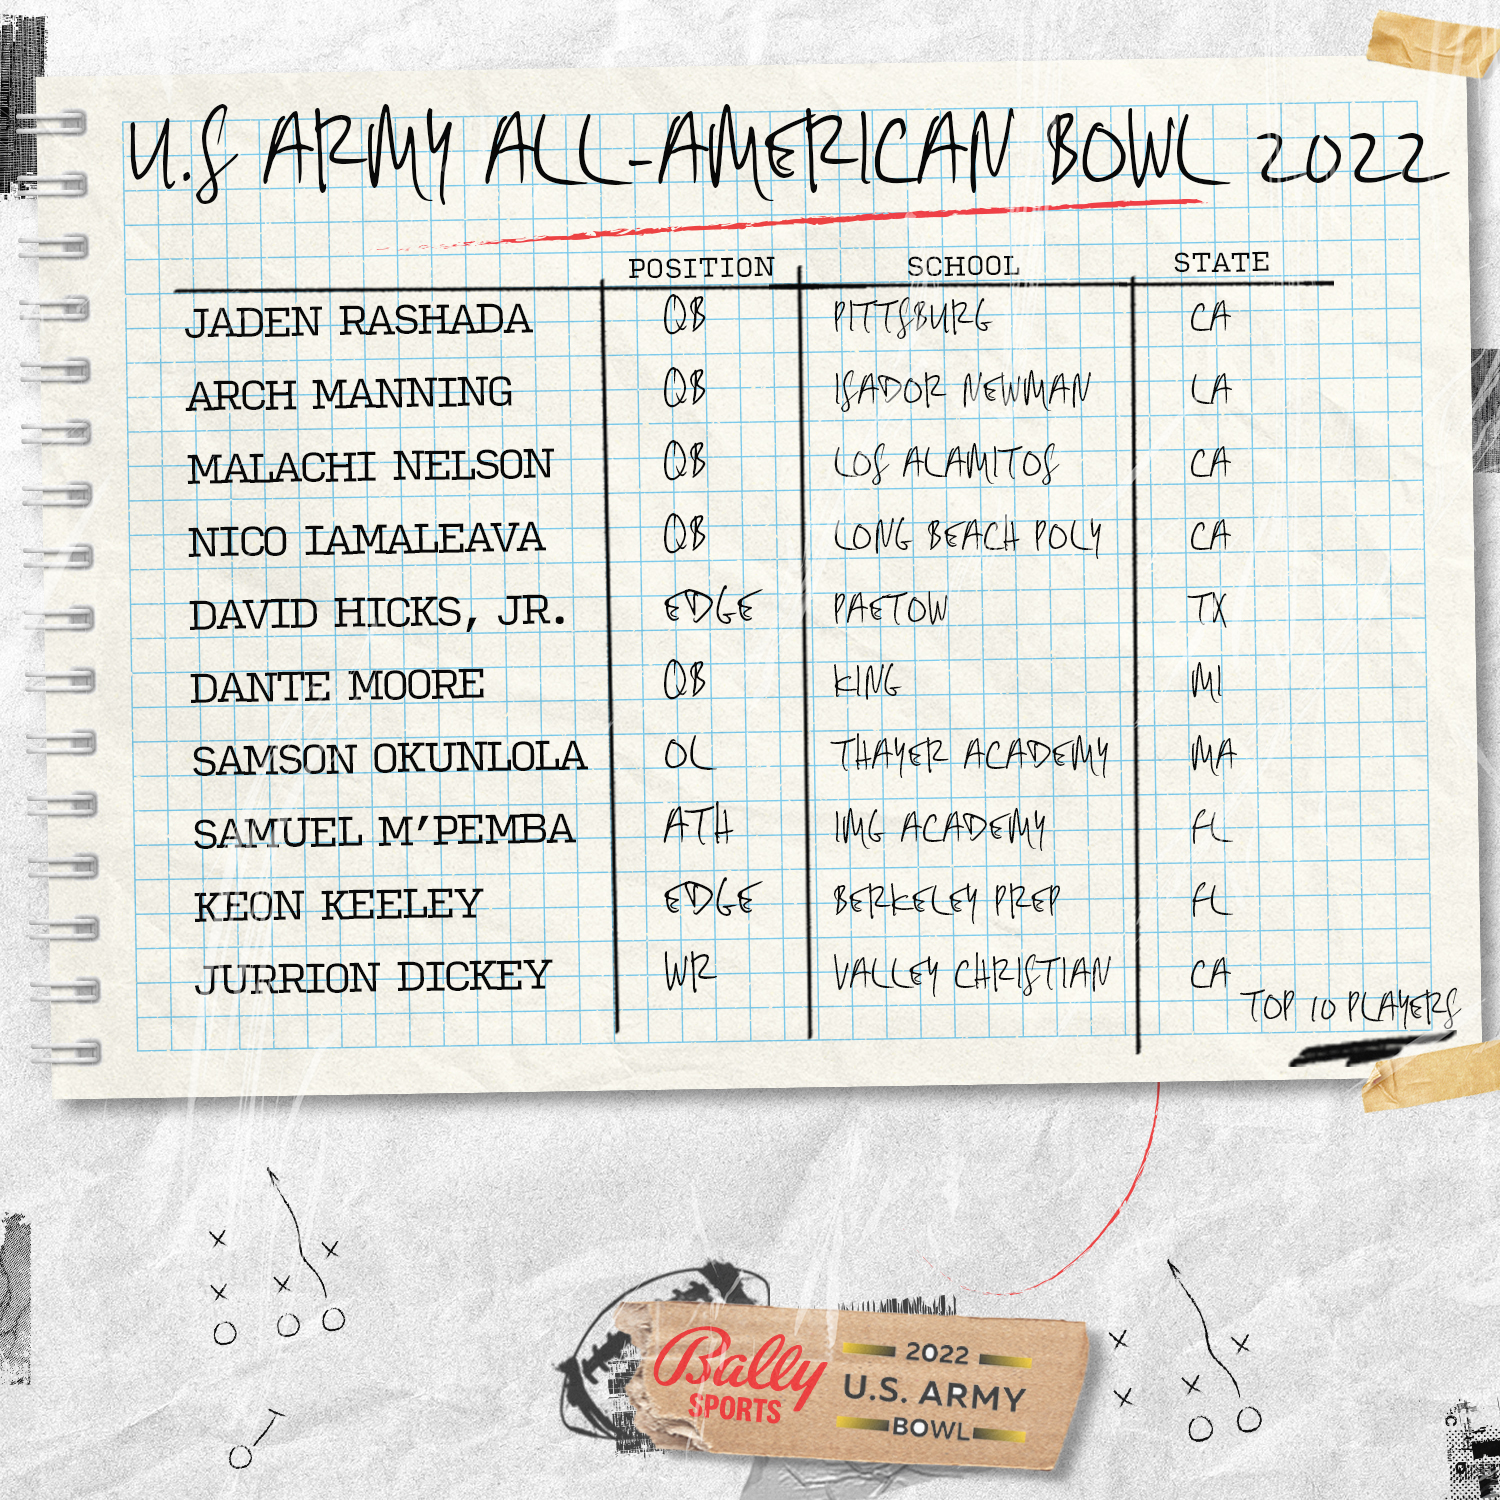 U.S ARMY ALL-AMERICAN BOWL 2022
POSITION SCHOOL STATE
JADEN RASHADA QB PITTSBURG CA
ARCH MANNING QB ISADOR NEWMAN LA
MALACHI NELSON QB LOS ALAMITOS CA
NICO IAMALEAVA QB LONG BEACH POLY CA
DAVID HICKS, JR. EDGE PAETOW TX
DANTE MOORE QB KING MI
SAMSON OKUNLOLA OL THAYER ACADEMY MA
SAMUEL M'PEMBA ATH IMG ACADEMY FL
KEON KEELEY EDGE BERKELEY PREP FL
JURRION DICKEY WR VALLEY CHRISTIAN CA
TOP 10 PLAYERS
Bally
SPORTS
2022
U.S. ARMY
BOWL